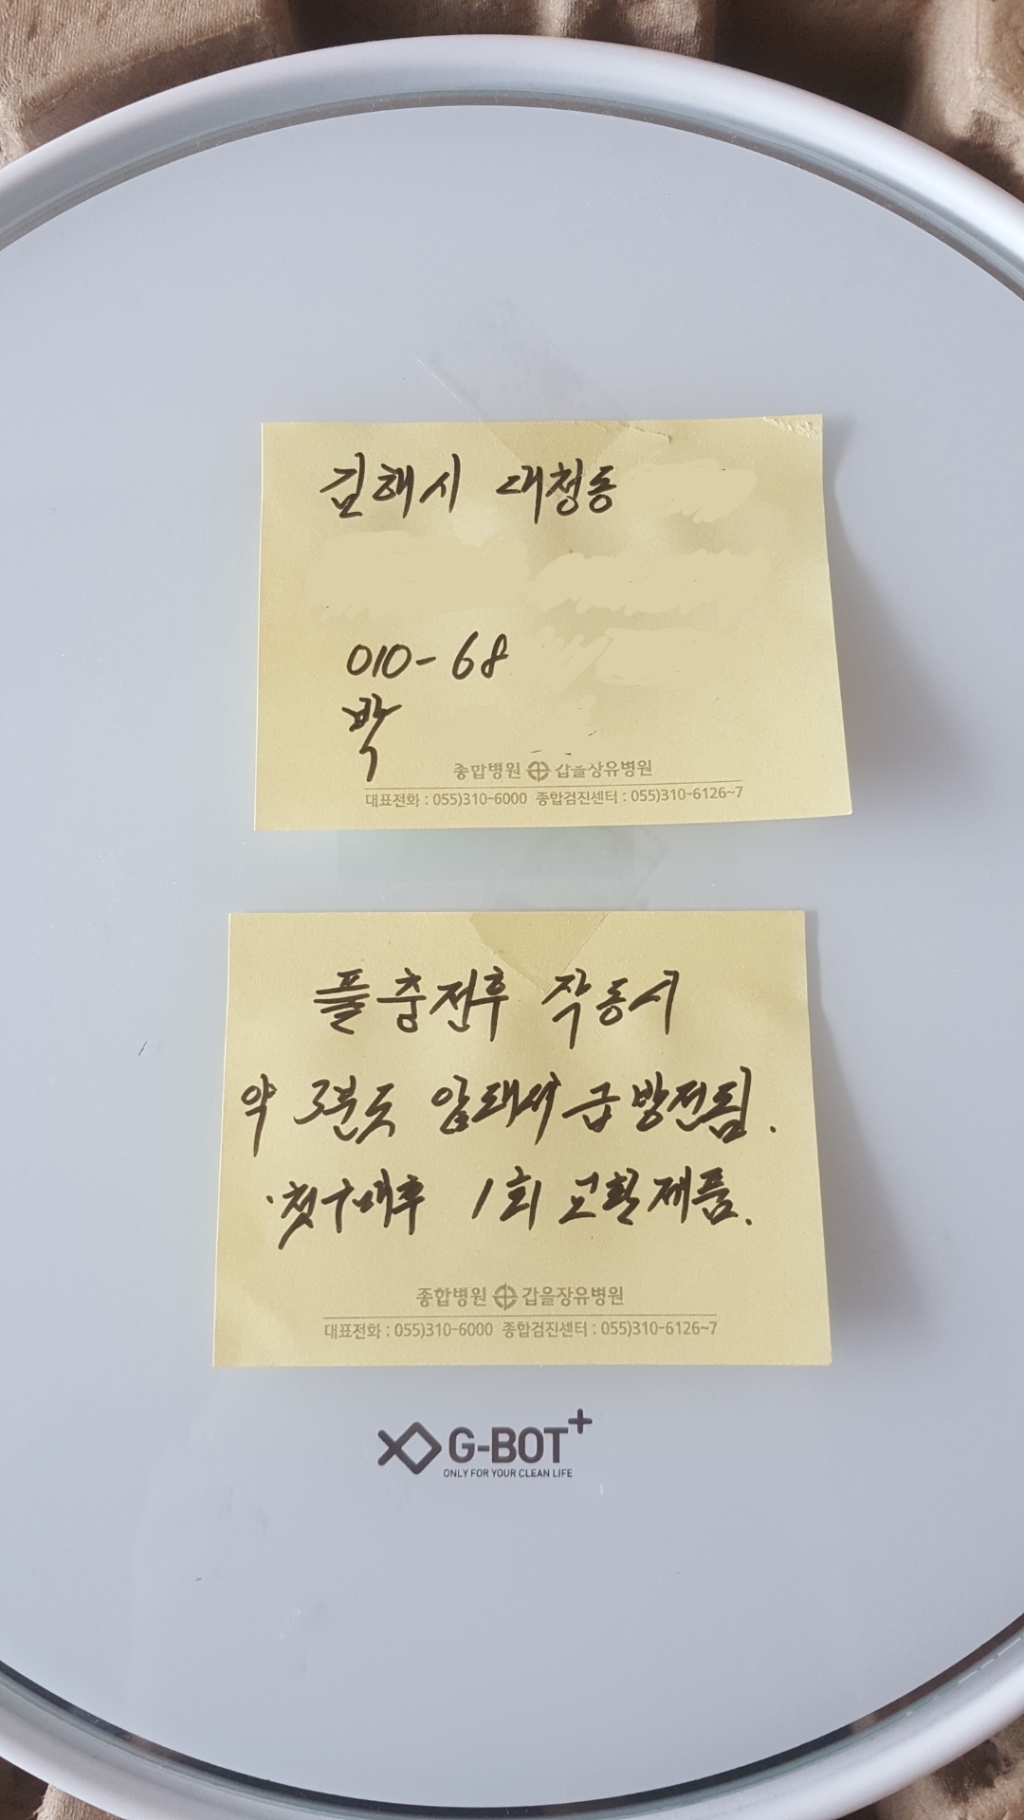 김해시 대청동
010-68
박
종합병원 갑을장유병원
대표전화 : 055)310-6000 종합검진센터 : 055)310-6126~7
풀충전후 작동시
약 3분도 안돼서 급 방전됨.
·첫구매후 1회 교환제품.
종합병원 갑을장유병원
대표전화 : 055)310-6000 종합검진센터 : 055)310-6126~7
G-BOT+
ONLY FOR YOUR CLEAN LIFE